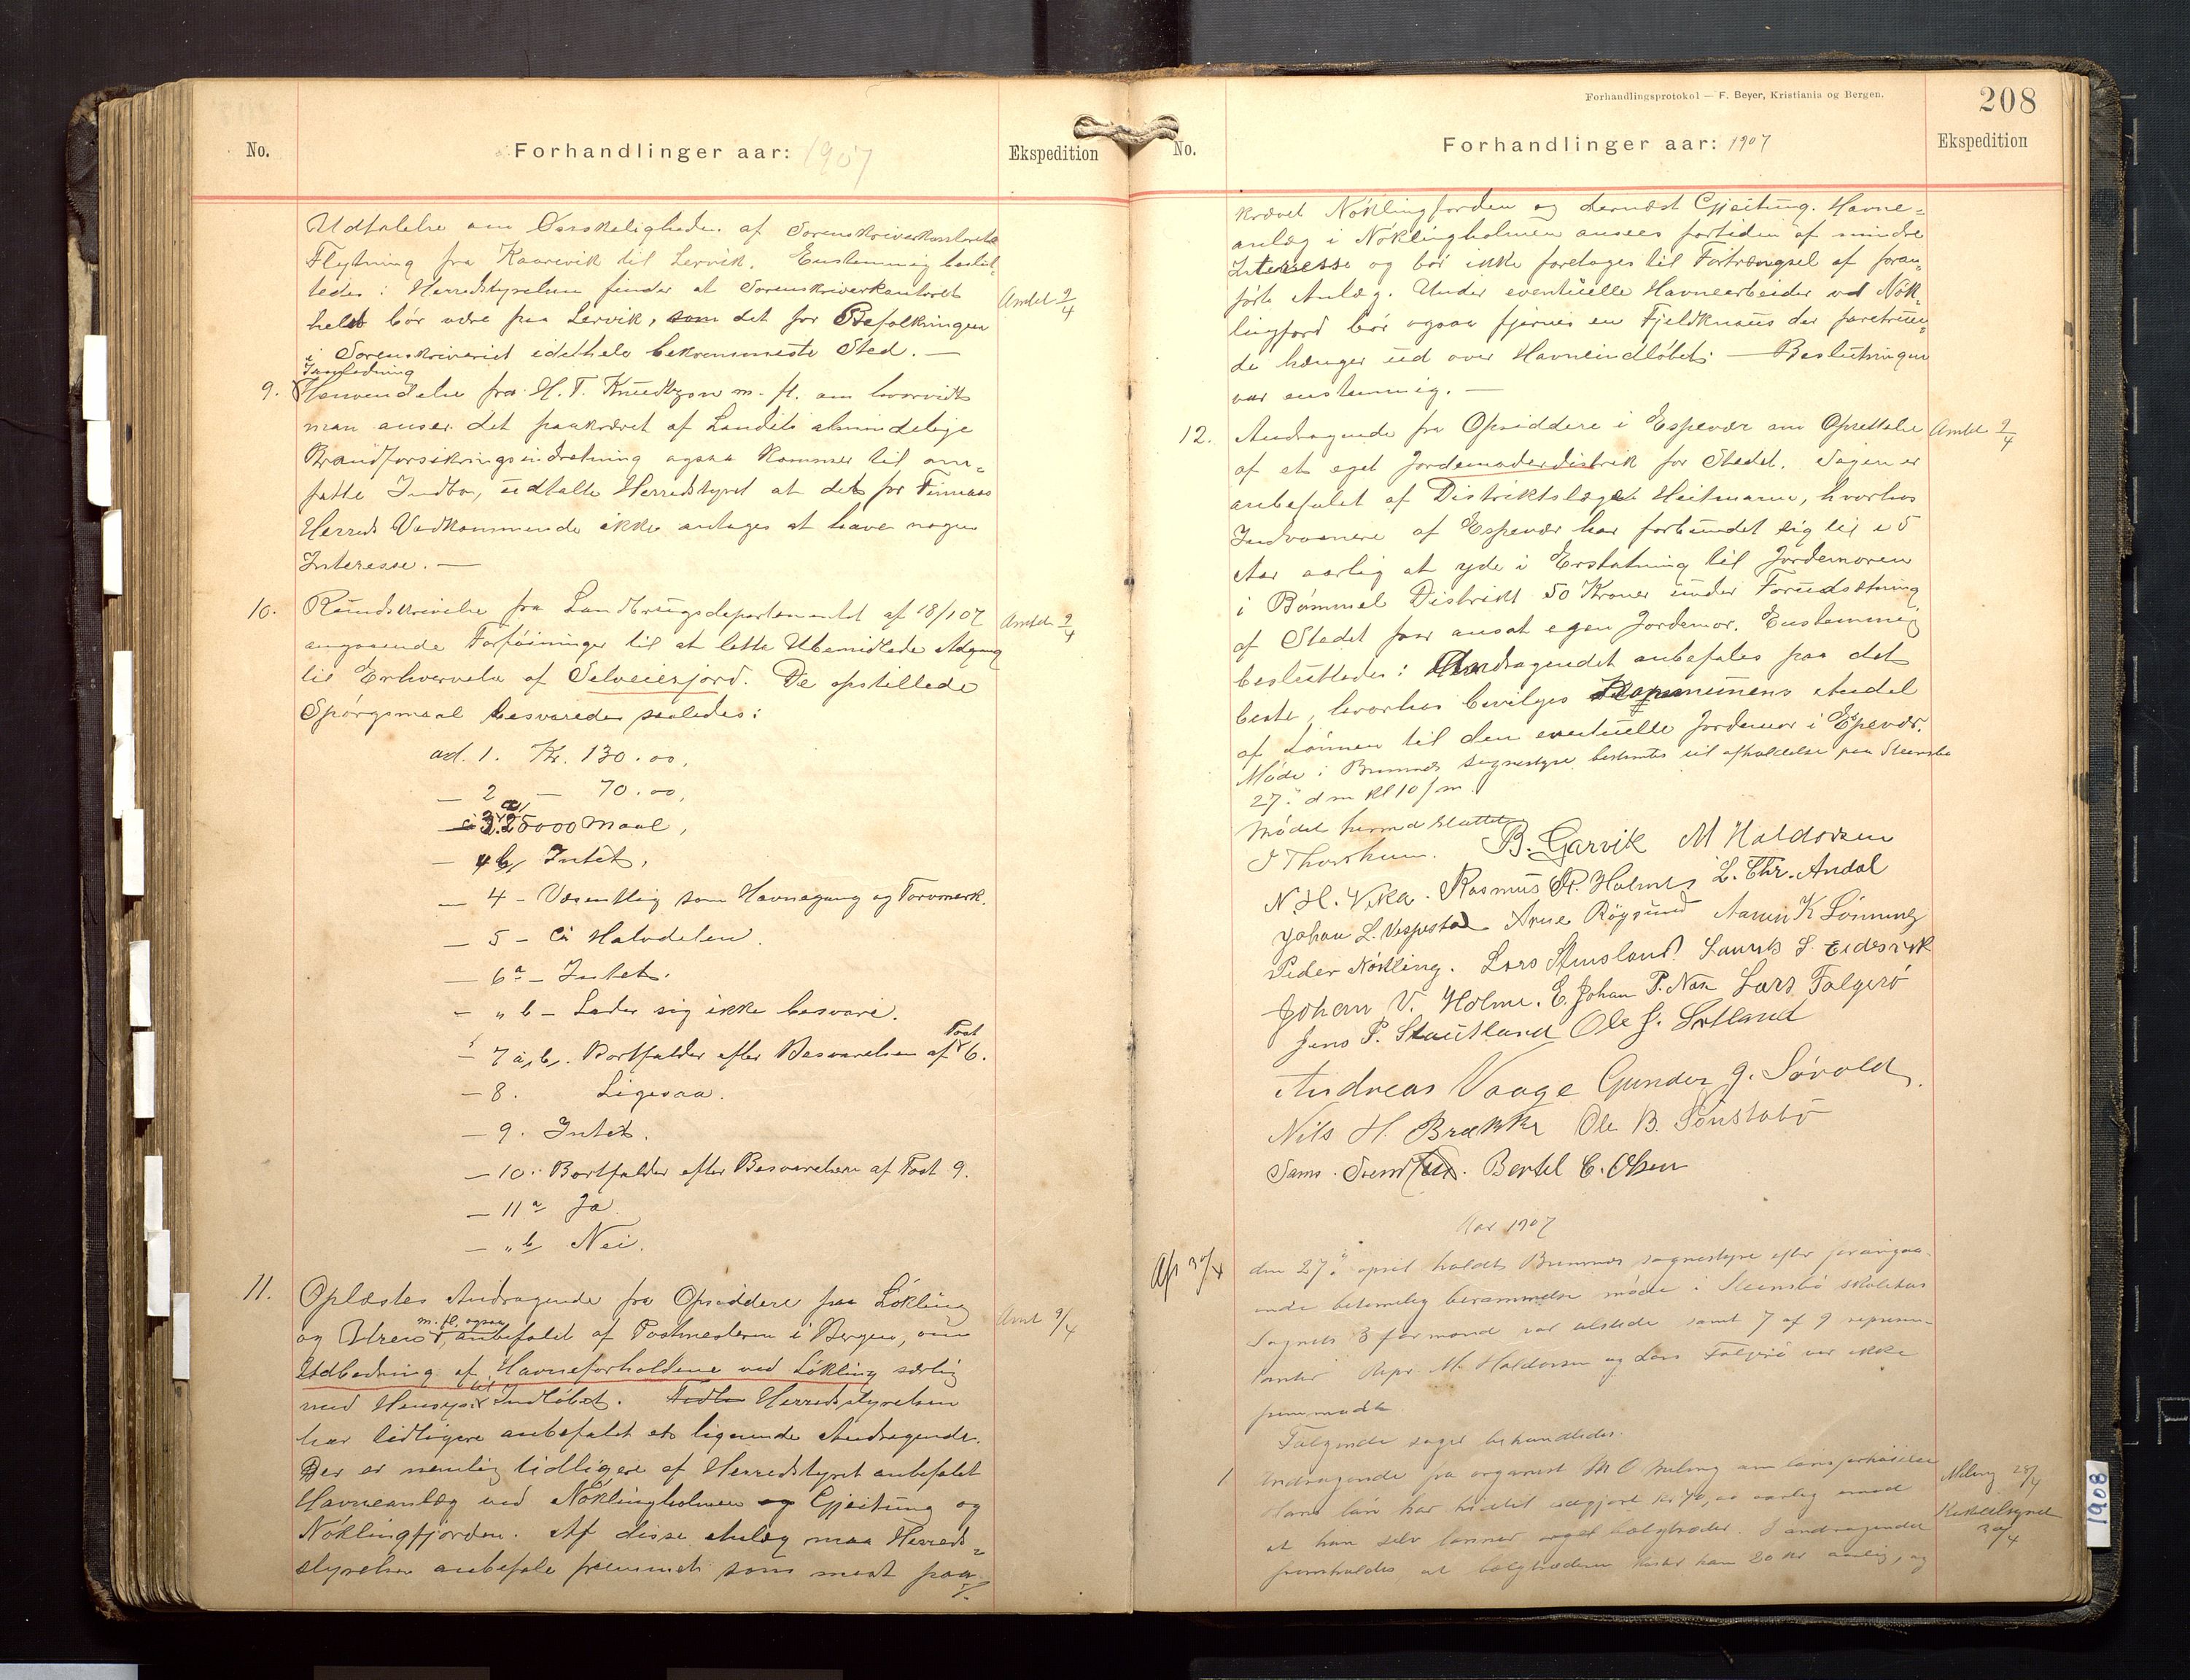 No.
Forhandlinger aar: 1907
Ekspedition
Udtalelse om Ønskeligheden af Sorenskriverkontorets
Flytning fra Kaarevik til Lervik. Enstemmig beslut-
tedes: Herredstyrelsen finder at Sorenskriverkontoret
helst bør være paa Lervik, som det for Befolkningen
i Sorenskriveriet idethele bekvemmeste Sted. —
Amtet 9/4
9. Henvendelse fra H. T. Knudtzon m. fl. om hvorvidt
man anser det paakrævet at Landets almindelige
Brandforsikringsindretning ogsaa kommer til om-
fatte Indbo, udtalte Herredstyret at det for Finnaas
Herreds Vedkommende ikke antages at have nogen
Interesse. —
10. Rundskrivelse fra Landbrugsdepartementet af 18/1 07
angaaende Forføininger til at lette Ubemidlede Adgang
til Erhvervelse af Selveierjord. De opstillede
Spørgsmaal besvaredes saaledes:
Amtet 9/4
ad. 1. Kr. 130.00,
— 2 — 70.00,
— 3 a, 25000 Maal,
— 4 b, Intet.
— 4 - Væsentlig som Havnegang og Torvmark.
— 5 - Ca Halvdelen.
— 6 a - Intet.
— " b - Lader sig ikke besvare.
— 7 a, b, Bortfalder efter Besvarelsen af Post 6.
— 8. Ligesaa.
— 9. Intet.
— 10. Bortfalder efter Besvarelsen af Post 9.
— 11 a Ja.
— " b Nei.
11. Oplæstes Andragende fra Opsiddere paa Løkling
og m. fl. ogsaa anbefalet af Postmesteren i Bergen, om
Udbedring af Havneforholdene ved Løkling særlig
med Hensyn til Indløbet. Herredsstyrelsen
har tidligere anbefalet et lignende Andragende.
Der er nemlig tidligere af Herredstyret anbefalet
Havneanlæg ved Nøklingholmen og Gjeitung og
Nøklingfjorden. Af disse Anlæg maa Herreds-
styrelsen anbefale fremmet som mest paa-
Amt 9/4
Forhandlingsprotokol — F. Beyer, Kristiania og Bergen.
208
No.
Forhandlinger aar: 1907
Ekspedition
krævet Nøklingfjorden og dernæst Gjeitung. Havne-
anlæg i Nøklingholmen ansees fortiden af mindre
Interesse og bør ikke foretages til Fortrængsel af foran-
førte Anlæg. Under eventuelle Havnearbeider ved Nøk-
lingfjord bør ogsaa fjernes en Fjeldknaus der faretruen-
de hænger ud over Havneindløbet. — Beslutningen
var enstemmig. —
12. Andragende fra Opsiddere i Espevær om Oprettelse
af et eget Jordemoderdistrik for Stedet. Sagen er
anbefalet af Distriktslæge Heitmann, hvorhos
Indvaanere af Espevær har forbundet sig til i 5
Aar aarlig at yde i Erstatning til Jordemoren
i Bømmel Distrikt 50 Kroner under Forudsætning
af Stedet faar ansat egen Jordemor. Enstemmig
besluttedes: Andragendet anbefales paa det
beste, hvorhos bevilges Kommunens Andel
af Lønnen til den eventuelle Jordemor i Espevær.
Amtet 9/4
Møde i Bremnes sognestyre bestemtes til afholdelse paa Steensbø
27. dm kl 10 fm.
Mødet hermed sluttet
B. Garvik M Haldorsen
N. H. Vika. Rasmus R. Holmes L. Chr. Andal
Johan L. Vespestad Arne Røgsund Aamu K Lønning
Peder Nøkling. Lars Steinsland. Laurits S. Eidesvik
Johan V. Holme. E. Johan P. Næs Lars Folgerø
Jens P. Stautland Ole J. Sætland
Andreas Vaage Gunder G. Søvold.
Nils H. Brække Ole B. Sønstabø
Bertel C. Olsen
Aar 1907
Afs 30/4
den 27. april holdtes Bremnes sognestyre efter forudgaa-
ende betimelig berammelse møde i Steensbø skolehus
Sognets 3 formænd var tilstede samt 7 af 9 repræsen-
tanter. Repr M. Haldorsen og Lars Folgerø var ikke
fremmødte.
Følgende sager behandledes:
1 Andragende fra organist M O Meling om lønsforhøielse
Hans løn har hidtil udgjort kr 70,00 aarlig imod
at han selv lønner orgel bælgtræder. I andragendet
fremholdes, at bælgtræderen koster ham 20 kr aarlig, og
Meling 28/4
Kirketilsynet
30/4
1908